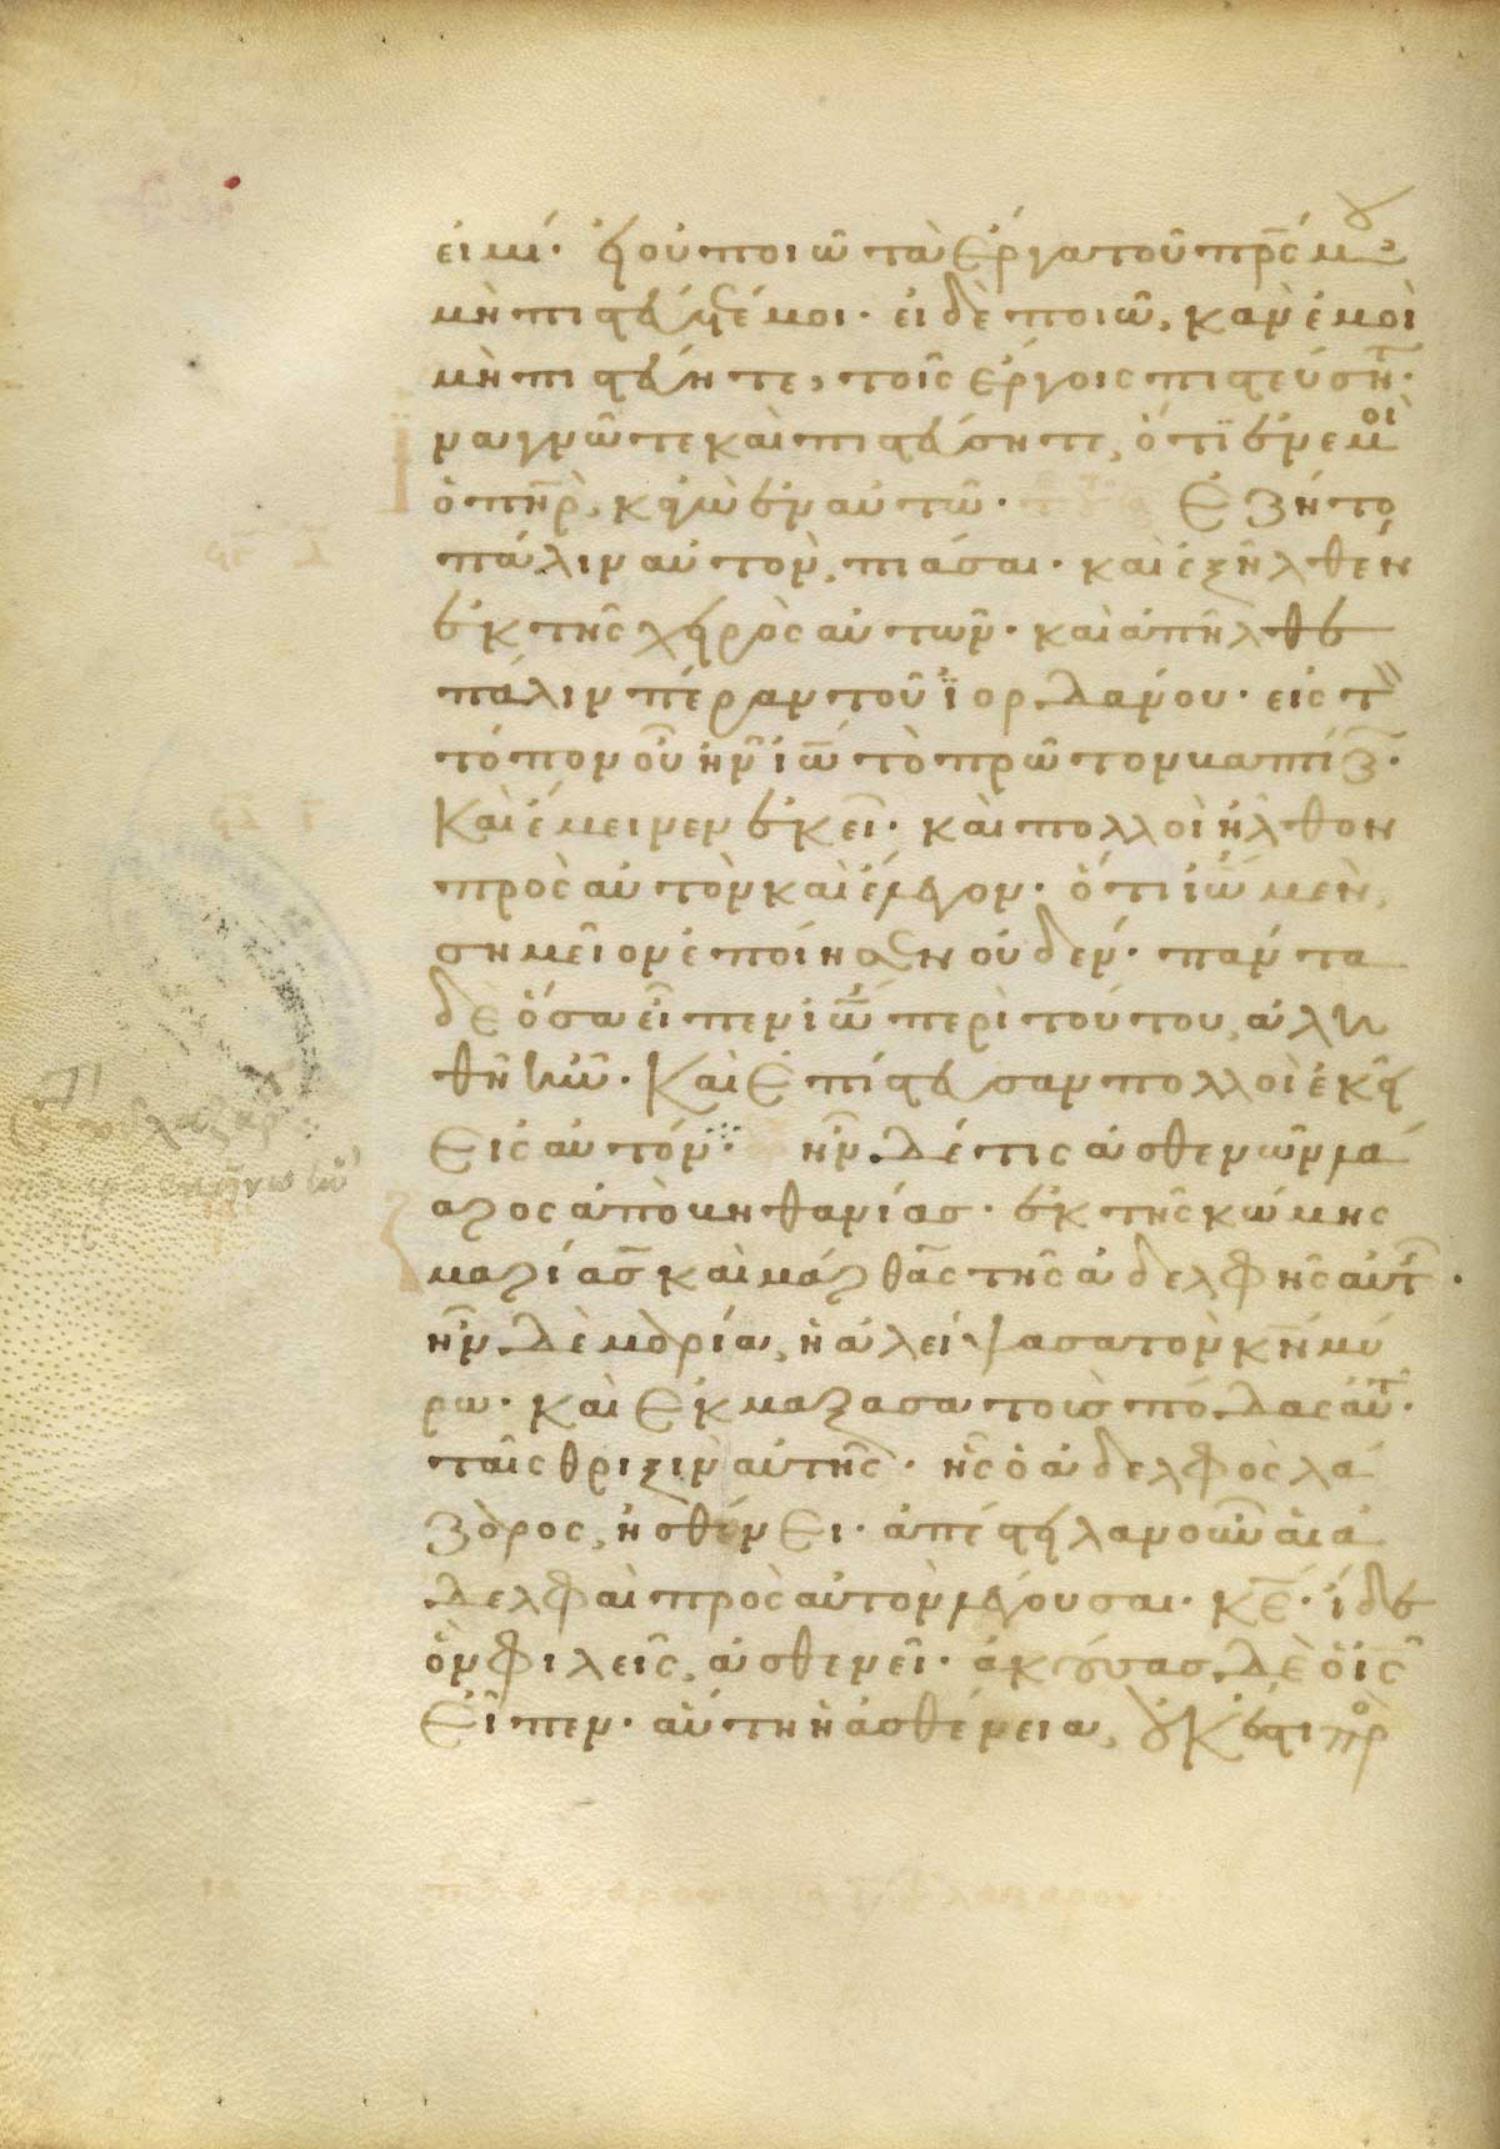 εἰμί· εἰ οὐ ποιῶ τὰ ἔργα τοῦ πρ̅ς μου
μὴ πιστεύετέ μοι· εἰ δὲ ποιῶ, κἀν ἐμοὶ
μὴ πιστεύητε, τοῖς ἔργοις πιστεύσητ·
ἵνα γνῶτε καὶ πιστεύσητε, ὅτι ἐν ἐμοὶ
ὁ πη̅ρ, κἀγὼ ἐν αὐτῶ· Ἐζήτο
πάλιν αὐτὸν, πιάσαι· καὶ ἐξῆλθεν
ἐκ τῆς χειρὸς αὐτῶν· καὶ ἀπῆλθε
πάλιν πέραν τοῦ ϊορδάνου· εἰς τὸν
τόπον οὗ ἦν ἰω̅ τὸ πρῶτον βαπτίζ·
Καὶ ἔμεινεν ἐκεῖ· καὶ πολλοὶ ἦλθον
πρὸς αὐτὸν καὶ ἔλεγον· ὅτι ἰω̅ μὲν,
σημεῖον ἐποίησεν οὐδέν· πάντα
δὲ ὅσα εἶπεν ἰω̅ περὶ τούτου, ἀλη
θῆ ἦν· Καὶ ἐπίστευσαν πολλοὶ ἐκεῖ
εἰς αὐτόν· ἦν δέ τις ἀσθενῶν λά
ζαρος ἀπὸ βηθανίας· ἐκ τῆς κώμης
μαρίας καὶ μάρθας τῆς ἀδελφῆς αὐτ·
ἦν δὲ μαρία, ἡ ἀλείψασα τὸν κν̅ μύ
ρω· καὶ ἐκμάξασα τοὺς πόδας αὐτ·
ταῖς θριξὶν αὐτῆς· ἧς ὁ ἀδελφὸς λά
ζαρος, ἠσθένει· ἀπέστειλαν οὖν αἱ ἀ
δελφαὶ πρὸς αὐτὸν λέγουσαι· κε̅· ἴδε
ὃν φιλεῖς, ἀσθενεῖ· ἀκούσας δὲ ὁ ις̅
εἶπεν· αὕτη ἡ ἀσθένεια, οὐκ ἔστι πρὸ